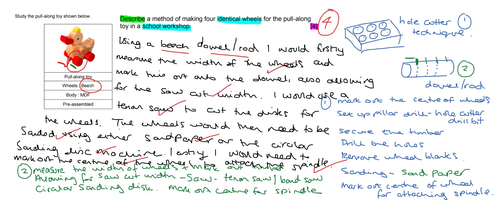 Study the pull-along toy shown below.
Pull-along toy
Wheels : Beech
Body : MDF
Pre-assembled
Describe a method of making four identical wheels for the pull-along
toy in a school workshop. [4]
4
Using a beech dowel/rod I would firstly
measure the width of the wheels and
mark this out onto the dowel, also allowing
for the saw cut width. I would use a
tenon saw to cut the disks for
the wheels. The wheels would then need to be
Sanded, using either sandpaper or the circular
Sanding disc machine. Lastly I would need to
mark out the centre of the wheel for attaching spindle.
② measure the width of wheels & mark out
Allowing for saw cut width - Saw - tenon saw / band saw
Circular Sanding disk. mark out centre for spindle
hole cutter ①
technique.
②
dowel/rod
① mark out the centre of wheels
Set up pillar drill - hole cutter
drill bit
Secure the timber
Drill the holes
Remove wheel blanks.
Sanding - Sand paper
Mark out centre of wheel
for attaching spindle.